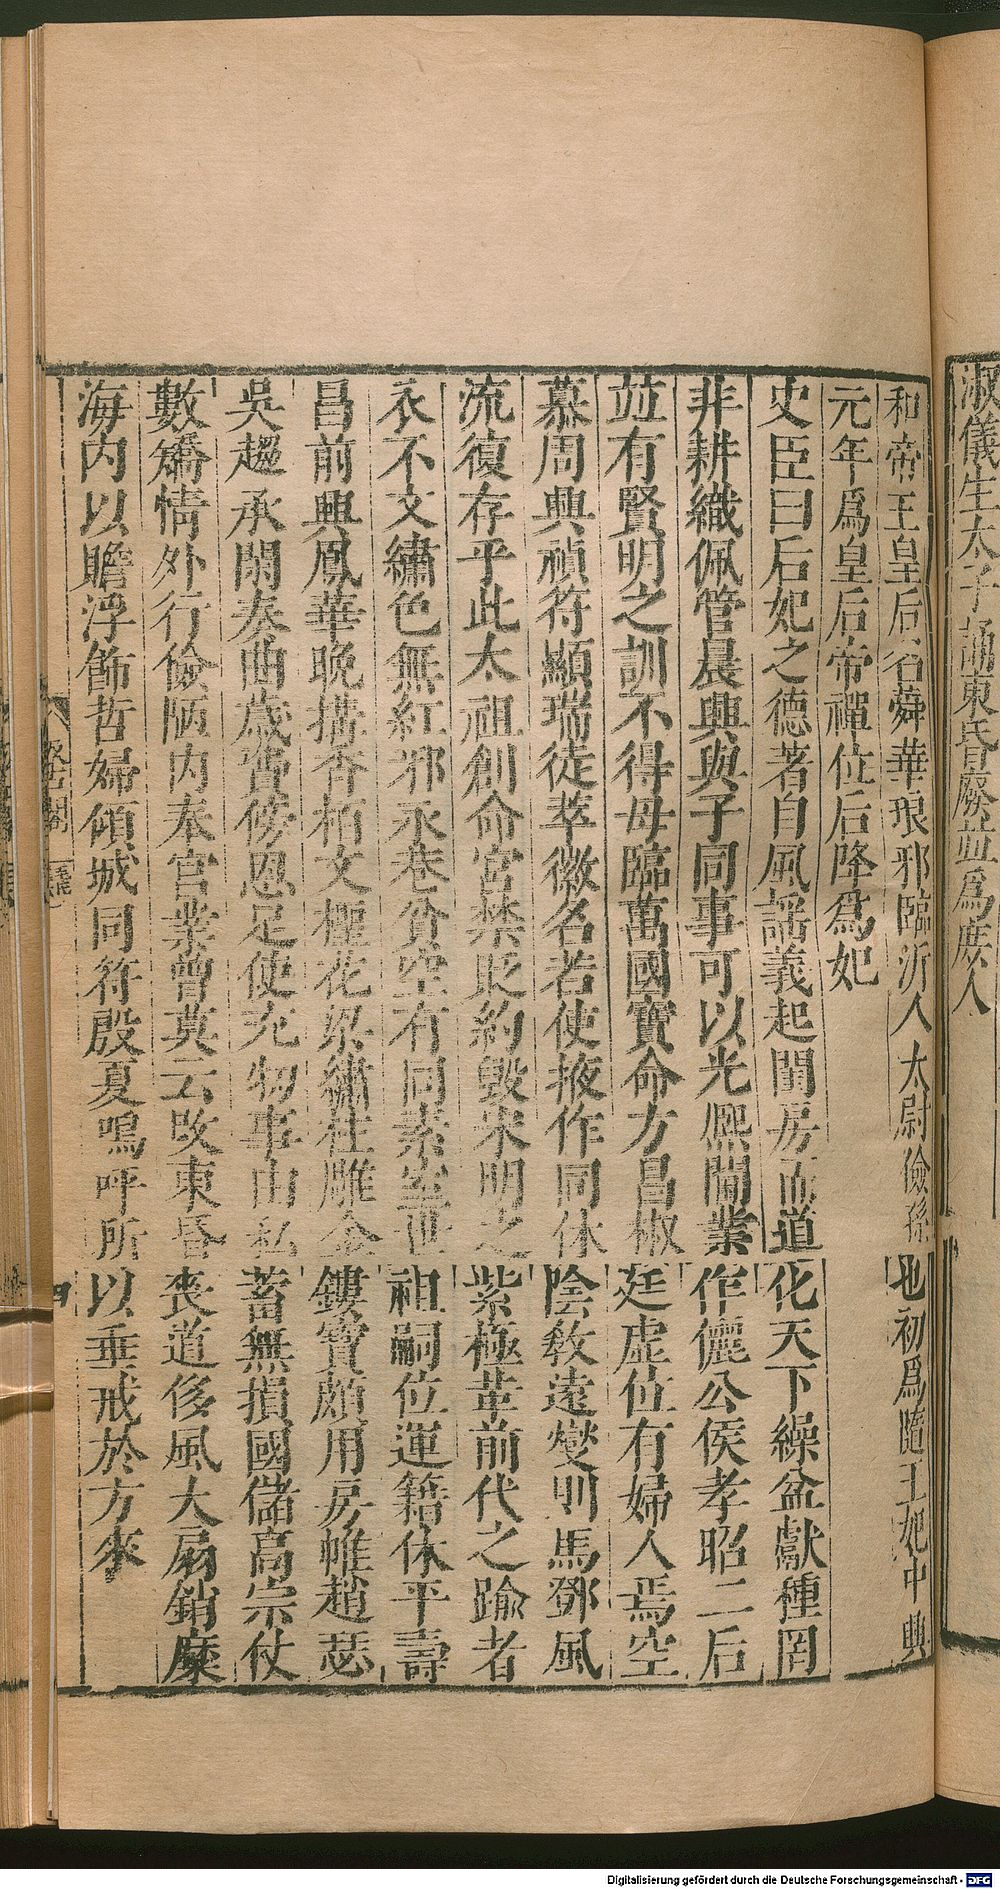 淑儀生太子誦東昏廢並爲庶人
和帝王皇后名蕣華琅邪臨沂人太尉儉孫也初爲隨王妃中興
元年爲皇后帝禪位后降爲妃
史臣曰后妃之德著自風謡義起閨房而道化天下繰盆獻種罔
非耕織佩管晨興與子同事可以光熙閫業作儷公侯孝昭二后
竝有賢明之訓不得母臨萬國寶命方昌椒廷虚位有婦人焉空
慕周興禎符顯瑞徒萃徽名若使掖作同休陰敎遠燮則馬鄧風
流復存乎此太祖創命宮禁貶約毀宋明之紫極革前代之踰者
衣不文繡色無紅邪永巷貧空有同素室世祖嗣位運籍休平壽
昌前興鳳華晚搆香栢文檉花梁繡柱雕金鏤寶頗用房帷趙瑟
吳趨承閑奏曲歲費傍恩足使充牣事由私蓄無損國儲高宗仗
數矯情外行儉陋内奉宮業曾莫云改東昏喪道侈風大扇銷糜
海内以贍浮飾哲婦傾城同符殷夏嗚呼所以垂戒於方來
Digitalisierung gefördert durch die Deutsche Forschungsgemeinschaft - DFG